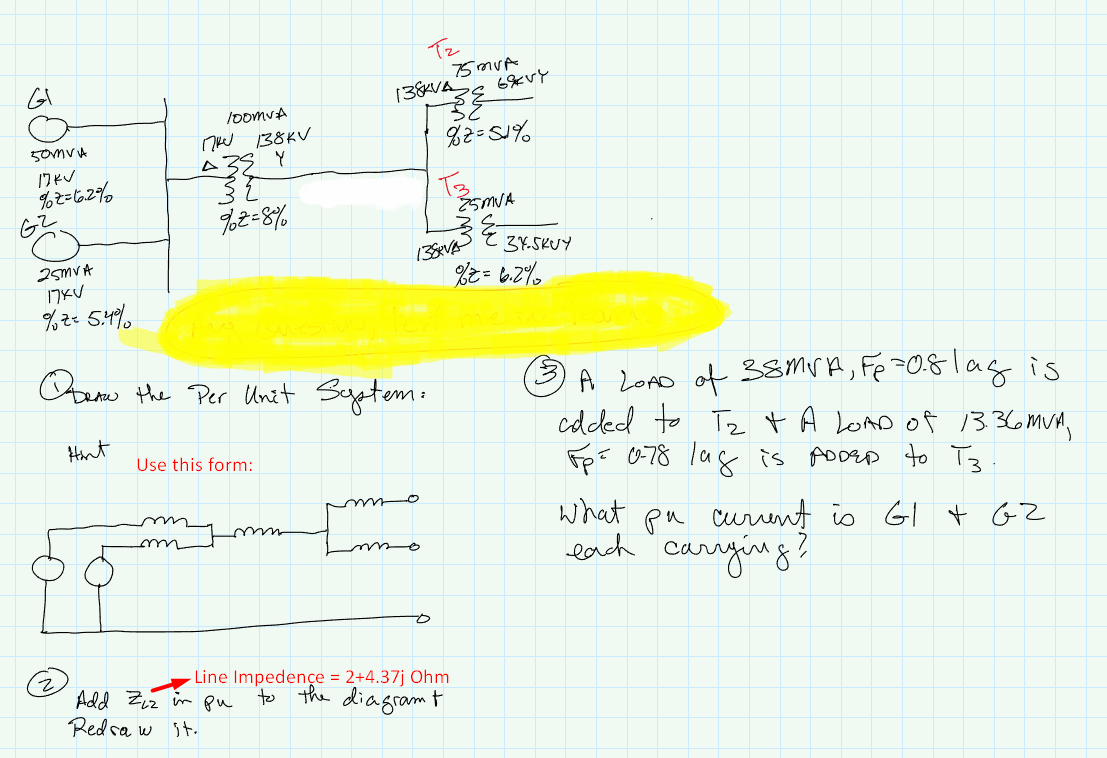 G1
50MVA
17KV
%Z=6.2%
G2
25MVA
17KV
%Z= 5.4%
100MVA
17KV 138KV
Δ Y
%Z=8%
T2
75MVA
138KVΔ 69KVY
%Z=5.1%
T3
25MVA
138KVΔ 34.5KVY
%Z= 6.2%
① DRAW the Per Unit System:
Hint
Use this form:
② Line Impedence = 2+4.37j Ohm
Add ZL2 in pu to the diagram +
Redraw it.
③ A LOAD of 38MVA, Fp=0.8 lag is
added to T2 + A LOAD OF 13.36MVA,
Fp= 0.78 lag is ADDED to T3.
What pu current is G1 + G2
each carrying?